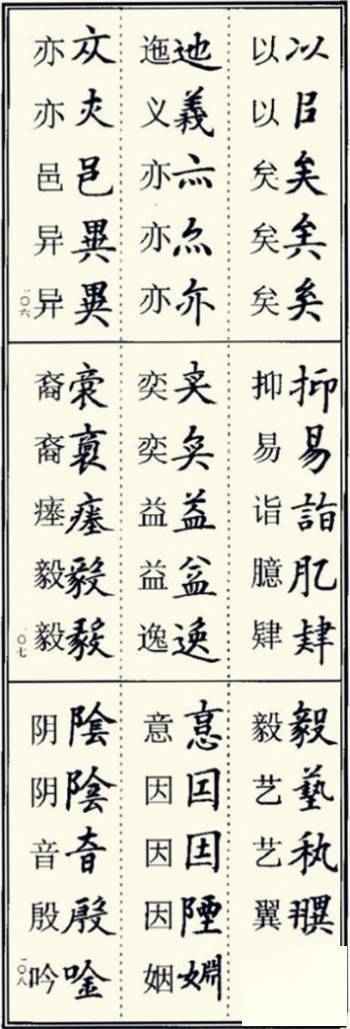 以㠯矣矣矣
以以矣矣矣
迆義亦亦亦
迤义亦亦亦
亦亦邑異異
亦亦邑异异
一〇六
抑易詣肊肄
抑易诣臆肄
奕奕益益逸
奕奕益益逸
裔裔瘞毅毅
裔裔瘞毅毅
一〇七
毅藝秇翼
毅艺艺翼
意因因陻婣
意因因因姻
陰陰音殷唫
阴阴音殷吟
一〇八